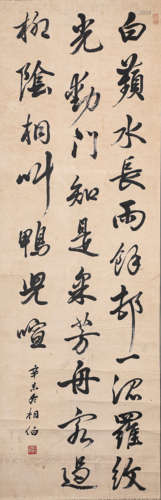 白蘋水長雨餘邨一派羅紋
光動門知是采芳舟客過
柳陰相叫鴨兒喧
辛未冬相伯